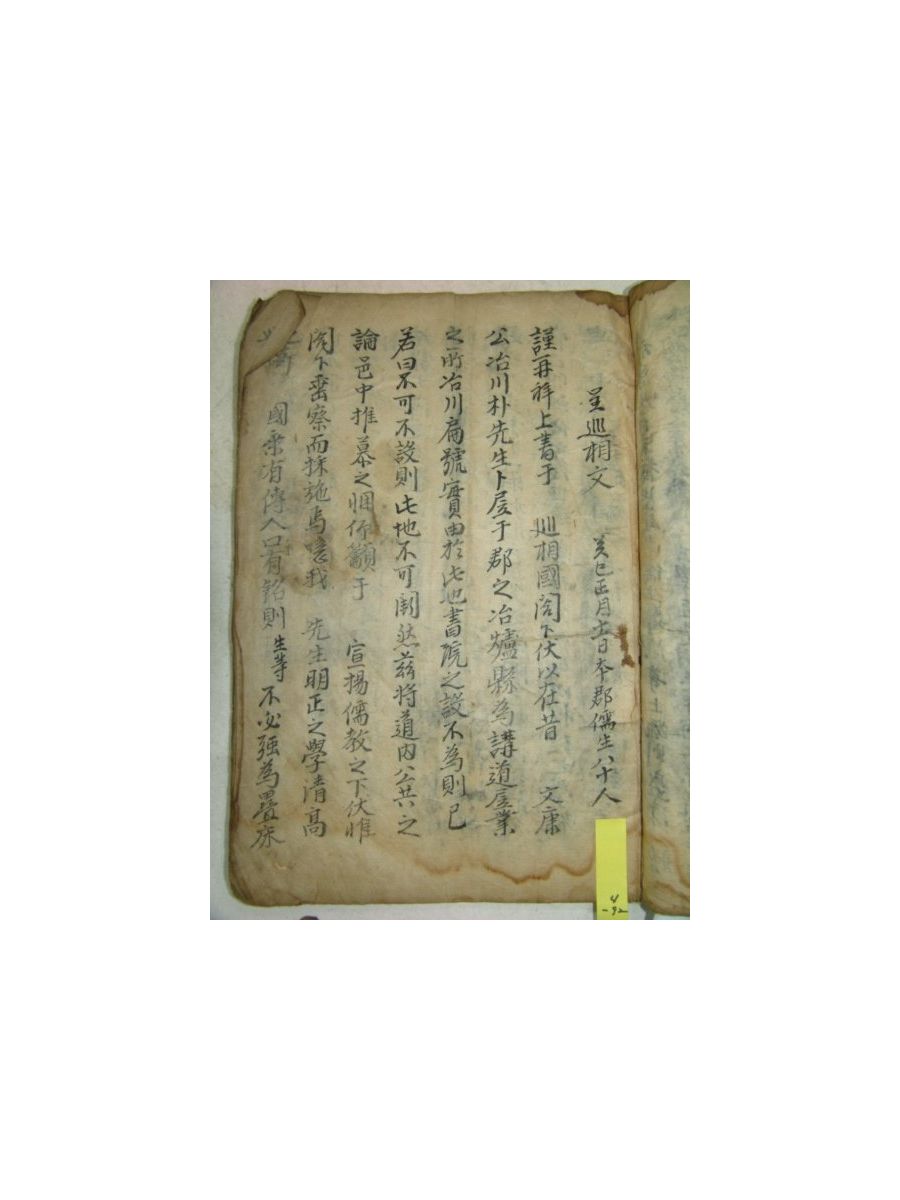 呈巡相文 癸巳正月十一日本郡儒生八十人
謹再拜上書于 巡相國閤下伏以在昔 文康
公冶川朴先生卜居于郡之冶爐縣為講道居業
之所冶川扁號實由於此也書院之設不為則已
若曰不可不設則此地不可闕然茲將道內公共之
論邑中推慕之悃仰籲于 宣揚儒教之下伏惟
閤下垂察而採施焉噫我 先生明正之學清高
之 國乘有傳人口有銘則生等不必强為疊床
4-92